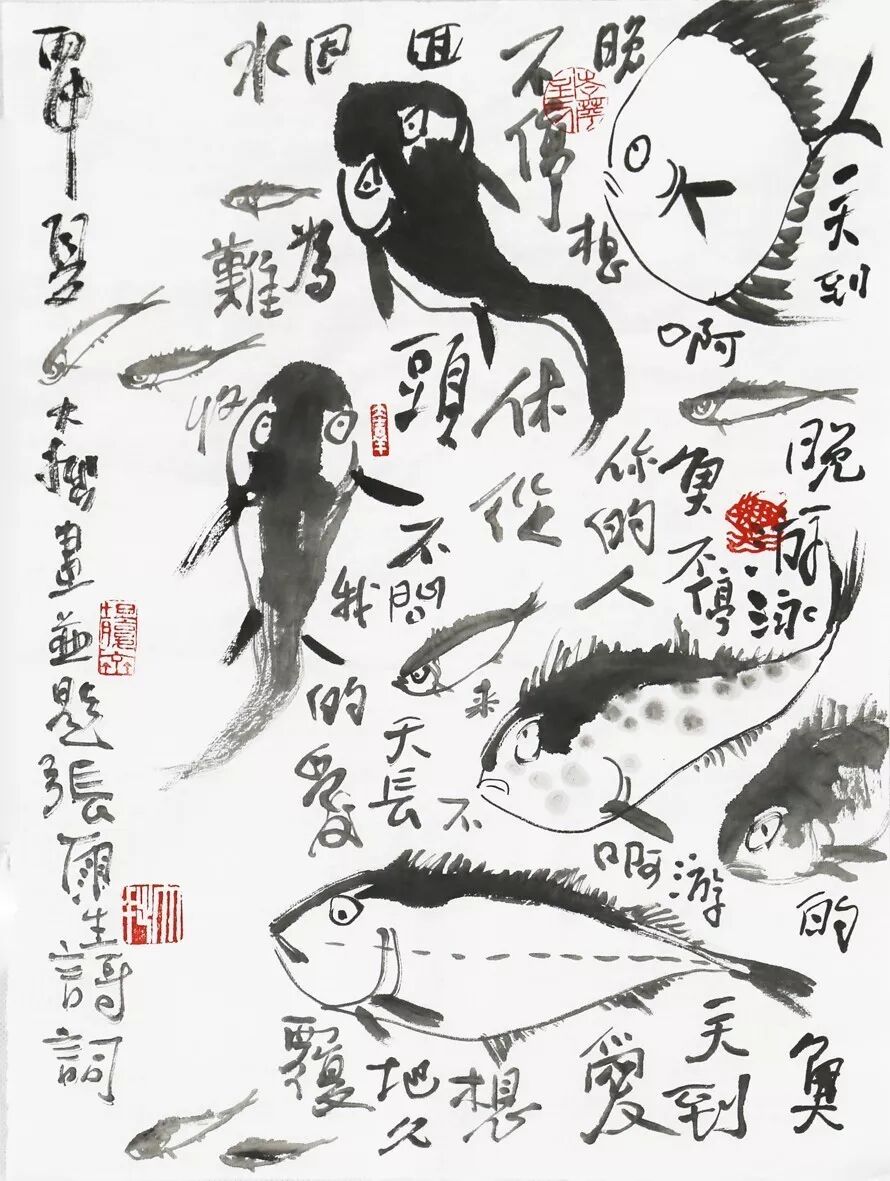 一天到晚游泳的魚
啊魚不停游一天到
晚想你的人啊愛
不停休從來不想
回頭不問天長地久
因為我的愛覆
水難收
甲申夏大畫並題張雨生詩詞